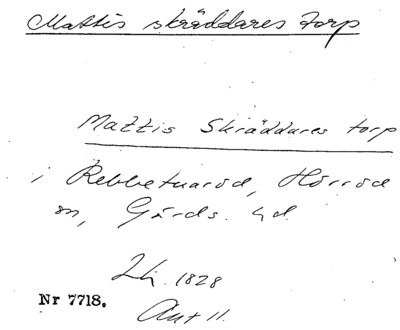 Mattis skräddares torp
Mattis Skräddares torp
i Rebbetuaröd, Hörröd
sn, Gärds hd.
1828
Nr 7718.
Ant 11.